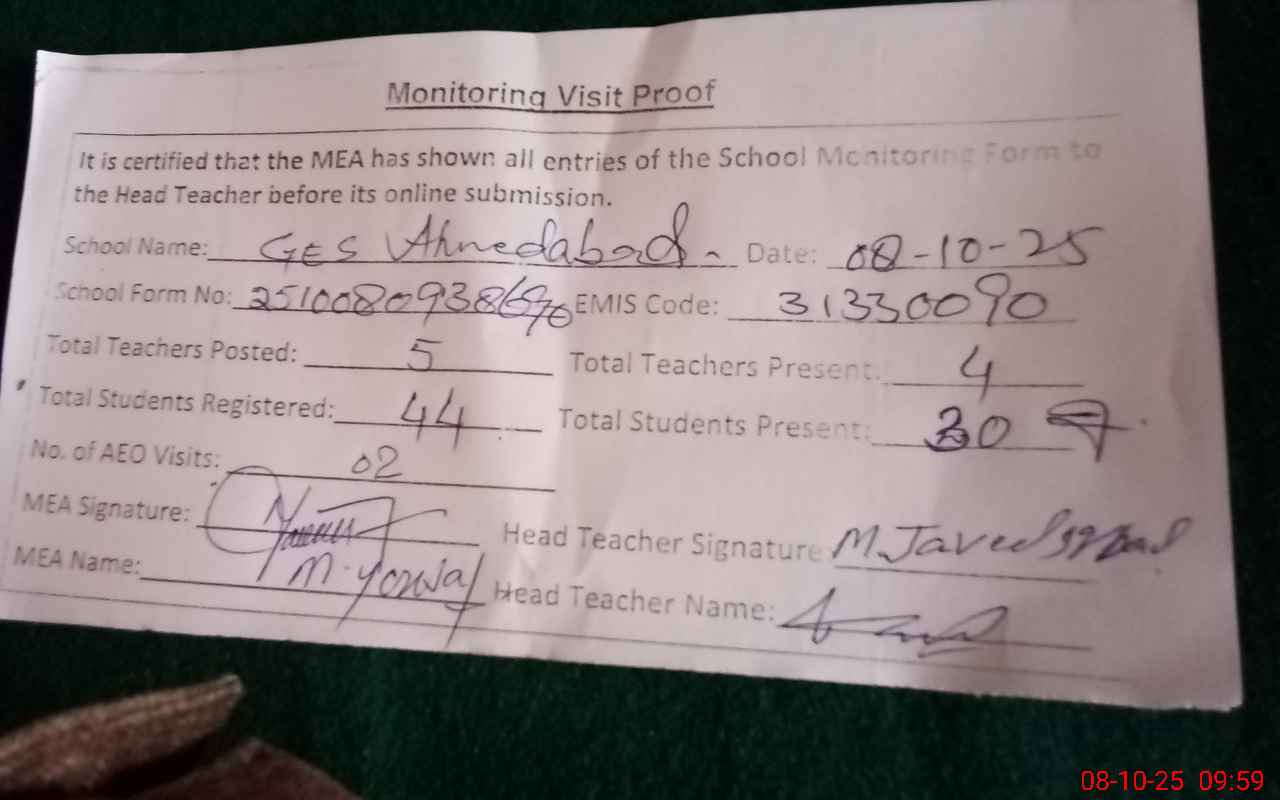 Monitoring Visit Proof
It is certified that the MEA has shown all entries of the School Monitoring Form to
the Head Teacher before its online submission.
School Name: GES Ahmedabad. Date: 08-10-25
School Form No: EMIS Code: 31330090
Total Teachers Posted: 5 Total Teachers Present: 4
Total Students Registered: 44 Total Students Present: 30
No. of AEO Visits: 02
MEA Signature: Head Teacher Signature M. Javed Iqbal
MEA Name: M. Head Teacher Name:
08-10-25 09:59